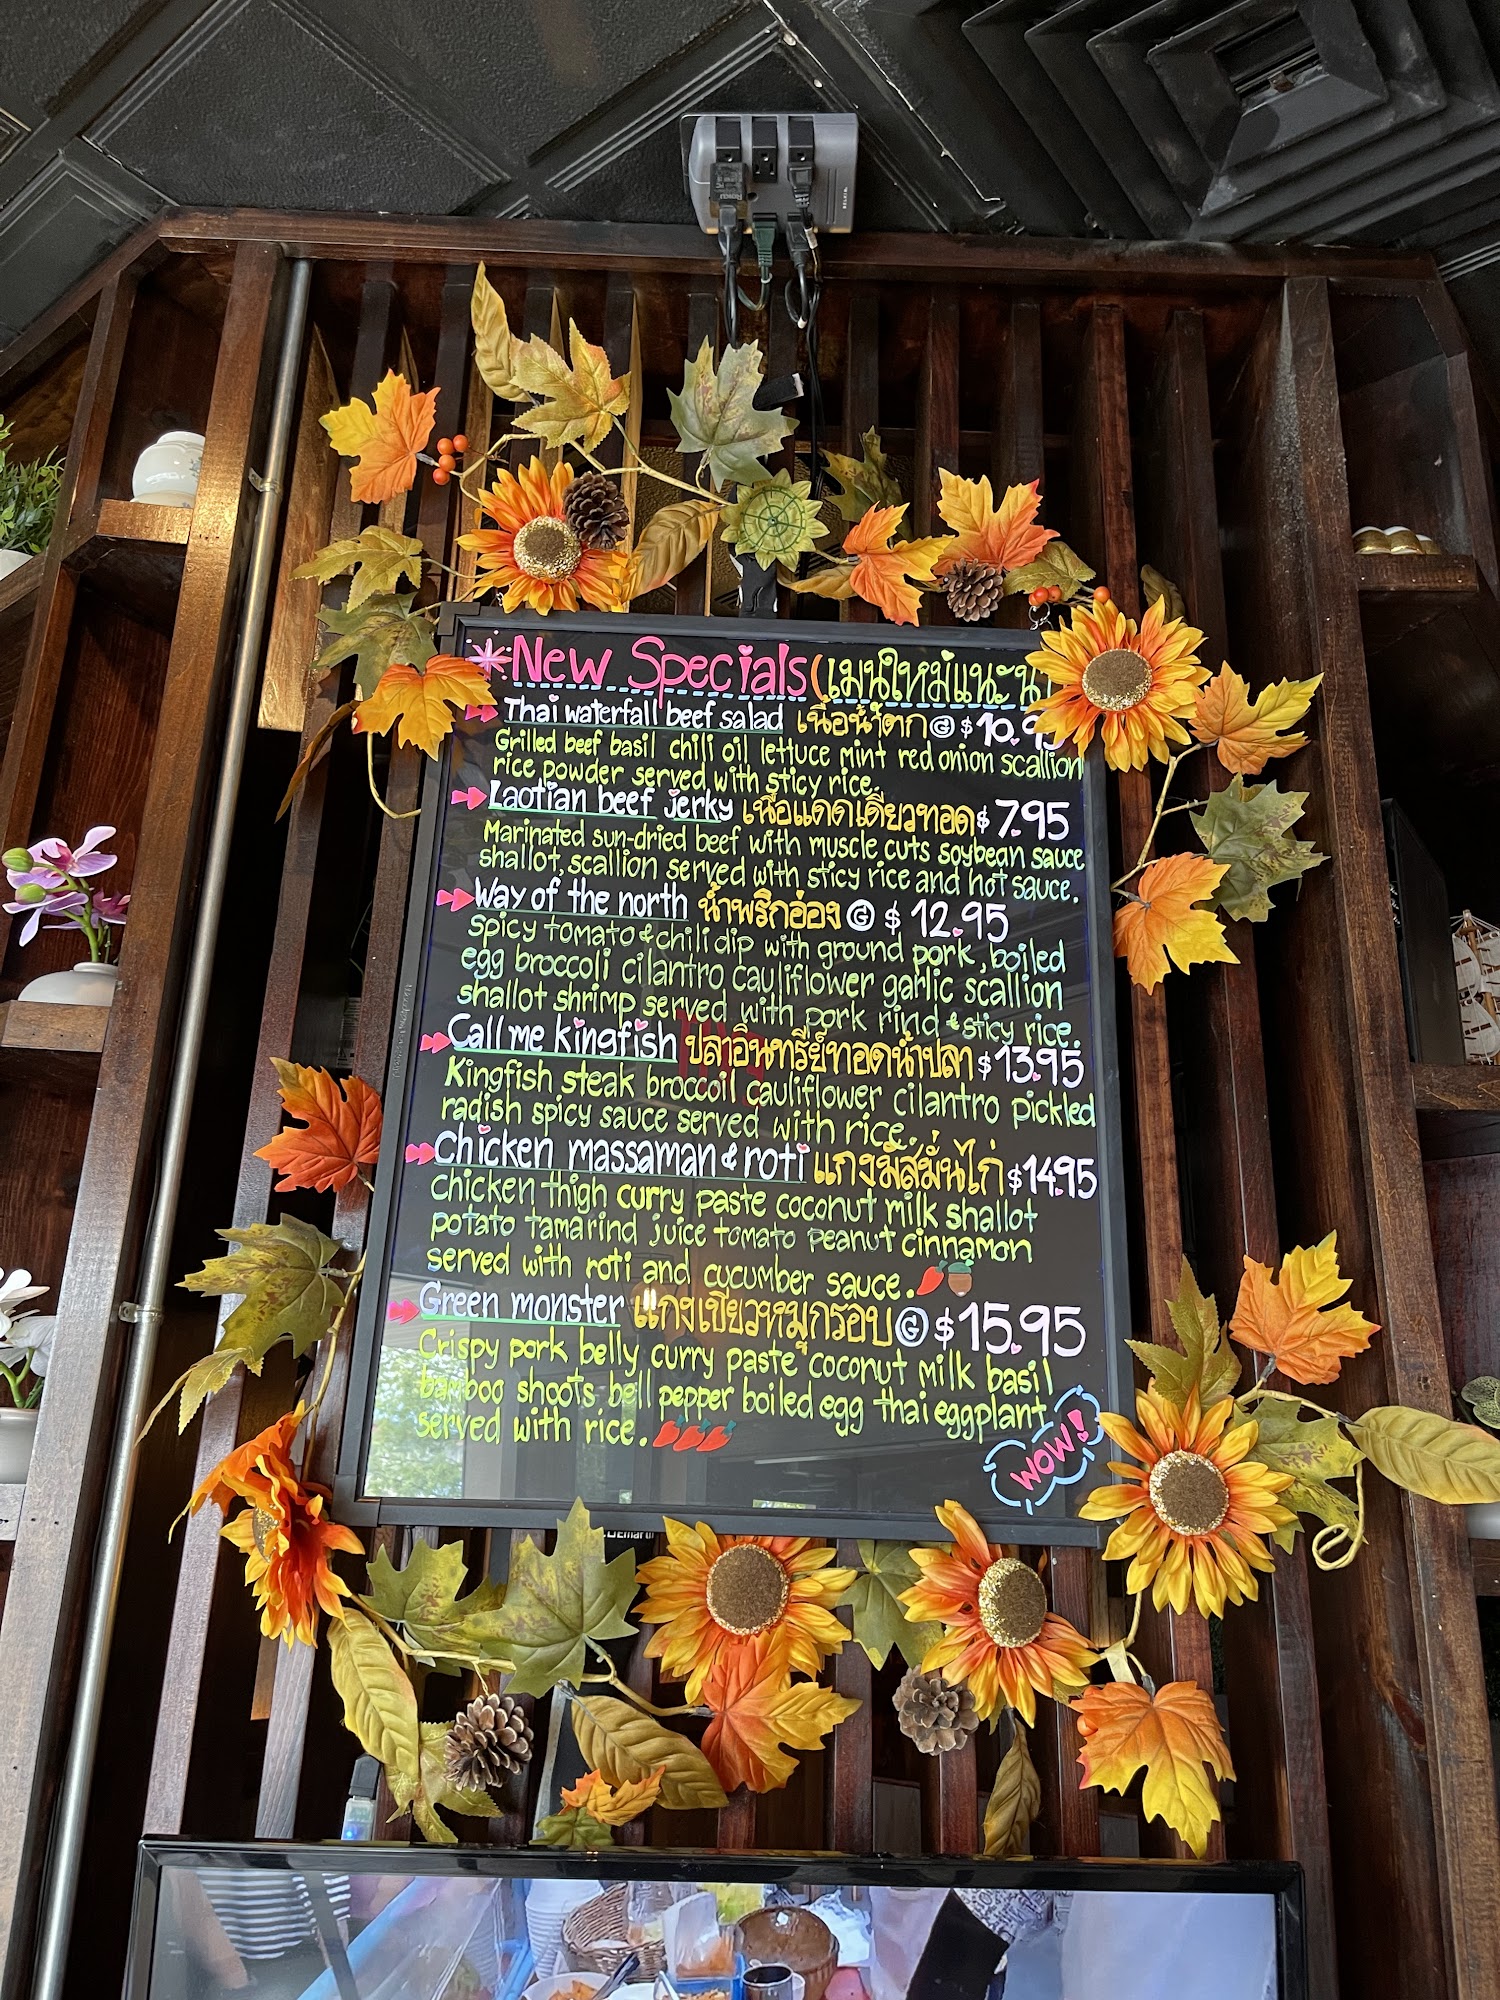 New Specials (เมนูใหม่แนะนำ
Thai waterfall beef salad เนื้อน้ำตก G $10.95
Grilled beef basil chili oil lettuce mint red onion scallion
rice powder served with sticy rice.
Laotian beef jerky เนื้อแดดเดียวทอด $7.95
Marinated sun-dried beef with muscle cuts soybean sauce
shallot, scallion served with sticy rice and hot sauce.
Way of the north น้ำพริกอ่อง G $12.95
spicy tomato & chili dip with ground pork, boiled
egg broccoli cilantro cauliflower garlic scallion
shallot shrimp served with pork rind & sticy rice.
Call me kingfish ปลาอินทรีย์ทอดน้ำปลา $13.95
Kingfish steak broccoil cauliflower cilantro pickled
radish spicy sauce served with rice.
Chicken massaman & roti แกงมัสมั่นไก่ $14.95
chicken thigh curry paste coconut milk shallot
potato tamarind juice tomato peanut cinnamon
served with roti and cucumber sauce.
Green monster แกงเขียวหมูกรอบ G $15.95
Crispy pork belly curry paste coconut milk basil
bamboo shoots bell pepper boiled egg thai eggplant
served with rice.
WOW!